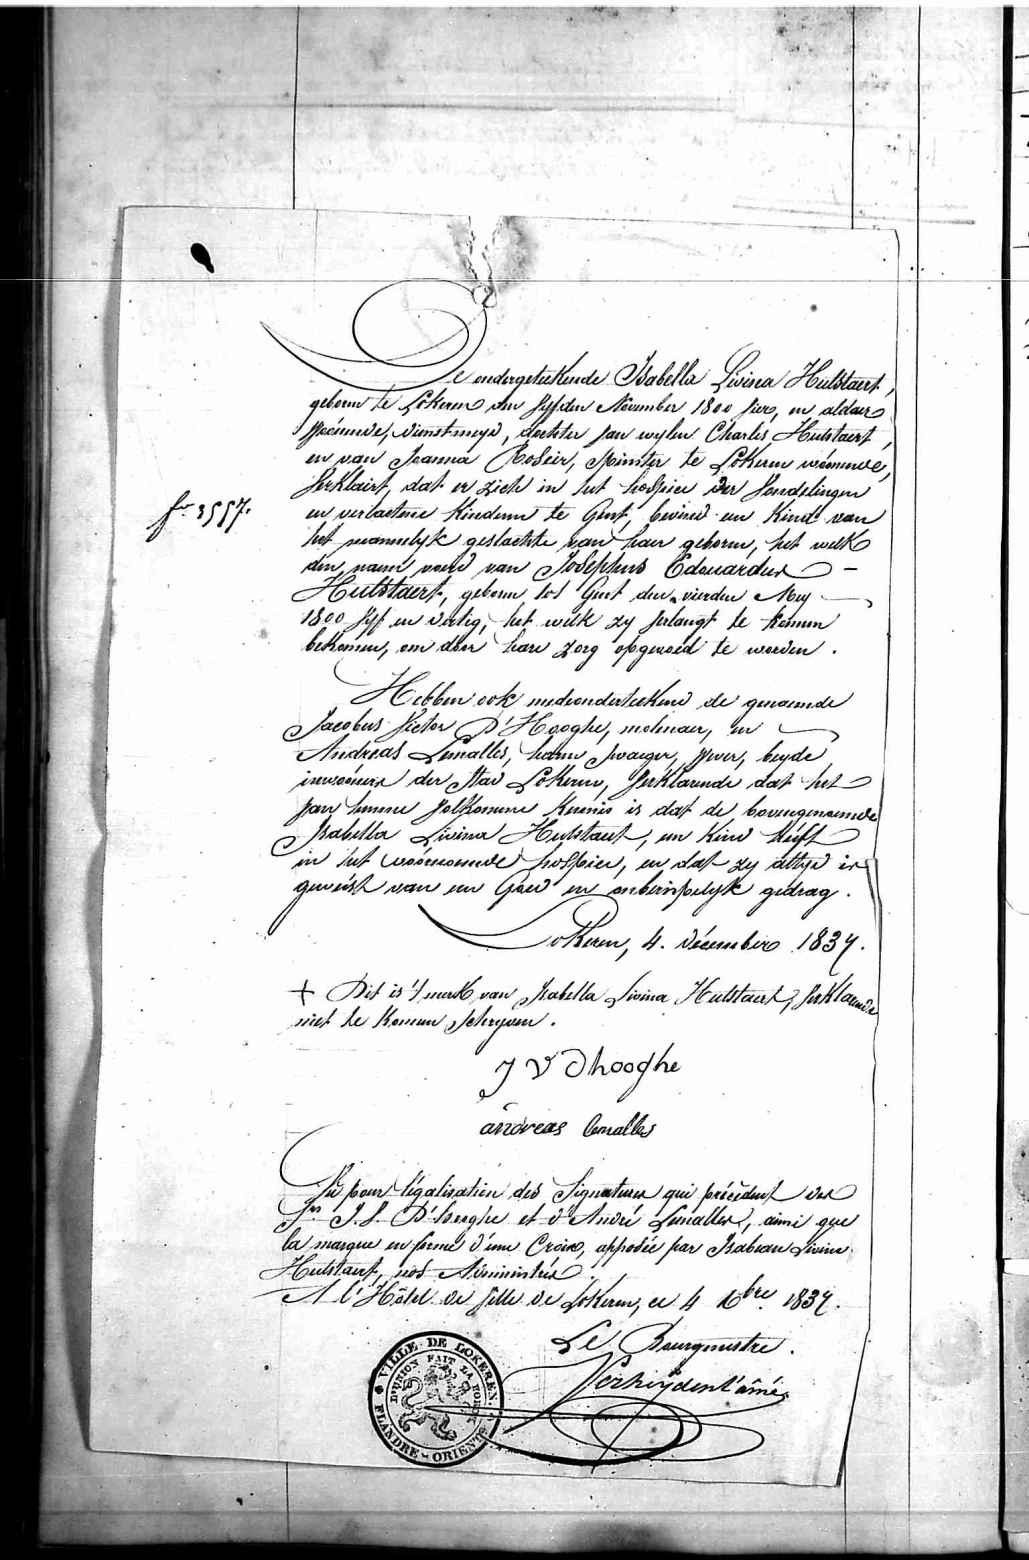 De ondergeteekende Isabella Livina Hulstaert,
geboren te Lokeren den vyfden November 1800 vier, en aldaer
woónende, dienstmeyd, dochter van wylen Charles Hulstaert,
en van Joanna Roseir, spinster te Lokeren woónende,
Verklaert, dat er zich in het hospice der Vondelingen
en verlaetene kinderen te Gent, bevind een kind van
het mannelyk geslachte van haer geboren, het welk
den naem voerd van Josephus Edouardus
Hulstaert, geboren tot Gent den vierden Mey
1800 vyf en dertig, het welk zy verlangt te komen
bekomen, om door hare zorg opgevoed te worden.
fo 3557.
Hebben ook medeonderteekend de genoemde
Jacobus Victor D'Hooghe, molenaer, en
Andreas Lemalles, haren zwaeger, wever, beyde
inwooners der stad Lokeren, Verklaerende dat het
van hunne volkomene kennis is dat de bovengenoemde
Isabella Livina Hulstaert, een kind heeft
in het voórnoemde hospice, en dat zy altyd is
geweést van een Goed en onberispelyk gedrag.
Lokeren, 4. Décember 1837.
+ Dit is 't merk van Isabella Livina Hulstaert, Verklaerende
niet te konnen schryven.
J V Dhooghe
andreas lemalles
Vu pour légalisation des Signatures qui précèdent des
Srs J. V. D'hooghe et d'André Lemalles, ainsi que
la marque en forme d'une Croix, apposée par Isabeau Livine
Hulstaert, nos Administrés.
A l'Hôtel de Ville de Lokeren, ce 4 Xbre 1837.
Le Bourgmestre.
Verheyden l'aîné
VILLE DE LOKEREN
L'UNION FAIT LA FORCE
FLANDRE-ORIENTE